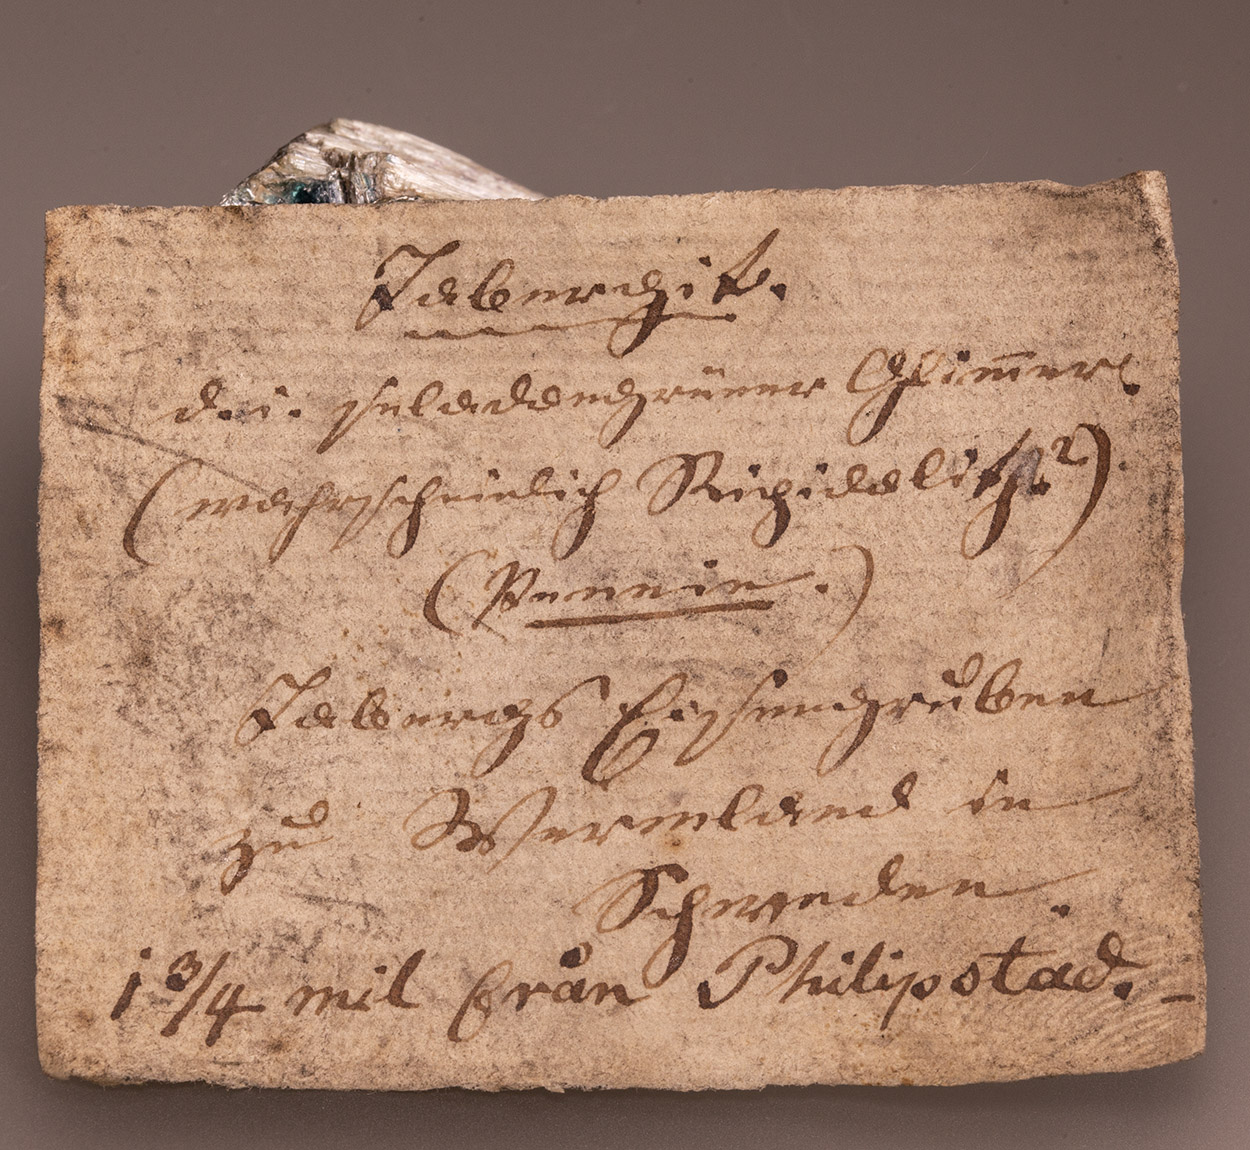 Tabergit.
d. i. seladongrüner Glimmer.
(wahrscheinlich Ripidolith?)
(Pennin.)
Tabergs Eisengruben
zu Wermeland in
Schweden.
1 3/4 mil från Philipstad. –